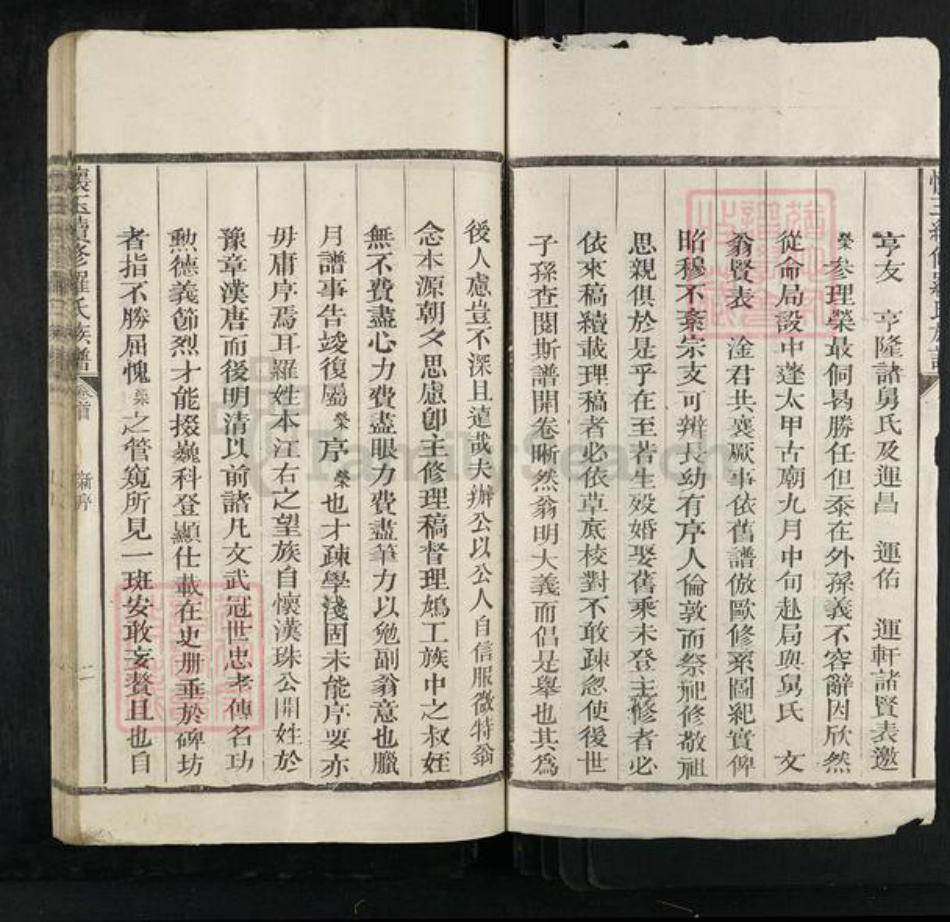 亨友　亨隆諸舅氏及運昌　運佑　運軒諸賢表邀
榮參理榮最侗曷勝任但忝在外孫義不容辭因欣然
從命局設中蓬太甲古廟九月中旬赴局與舅氏　文
翁賢表　淦君共襄厥事依舊譜倣歐修系圖紀實俾
昭穆不紊宗支可辨長幼有序人倫敦而祭祀修敬祖
思親俱於是乎在至若生歿婚娶舊乘未登主修者必
依來稿續載理稿者必依草底校對不敢疎忽使後世
子孫查閱斯譜開卷晰然翁明大義而倡是舉也其為
後人慮豈不深且遠哉夫辦公以公人自信服微特翁
念本源朝夕思慮卽主修理稿督理鳩工族中之叔姪
無不費盡心力費盡眼力費盡筆力以勉副翁意也臘
月譜事告竣復屬榮序榮也才疎學淺固未能序要亦
毋庸序焉耳羅姓本江右之望族自懷漢珠公開姓於
豫章漢唐而後明清以前諸凡文武冠世忠孝傳名功
勲德義節烈才能掇巍科登顯仕載在史册垂於碑坊
者指不勝屈愧榮之管窺所見一班安敢妄贅且也自
懷玉續修羅氏族譜　卷首　新序　二